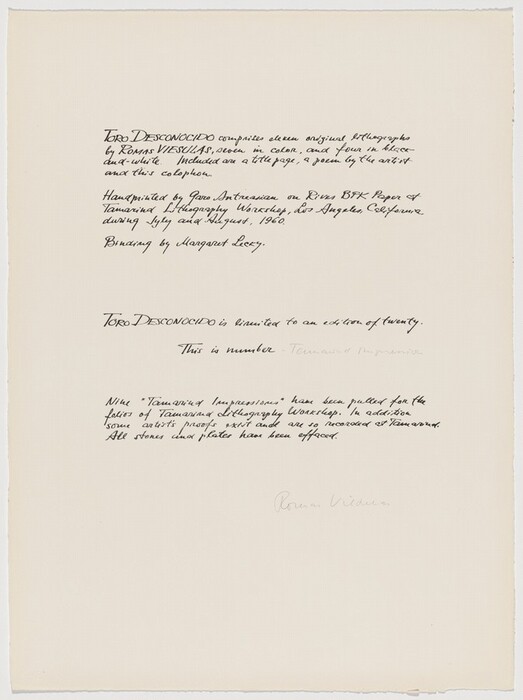 TORO DESCONOCIDO comprises eleven original lithographs
by ROMAS VIESULAS, seven in color, and four in black-
and-white. Included are a title page, a poem by the artist
and this colophon.
Handprinted by Garo Antreasian on Rives BFK Paper at
Tamarind Lithography Workshop, Los Angeles, California
during July and August, 1960.
Binding by Margaret Lecky.
TORO DESCONOCIDO is limited to an edition of twenty.
This is number Tamarind Impression
Nine "Tamarind Impressions" have been pulled for the
folios of Tamarind Lithography Workshop. In addition
some artist's proofs exist and are so recorded at Tamarind.
All stones and plates have been effaced.
Romas Viesulas